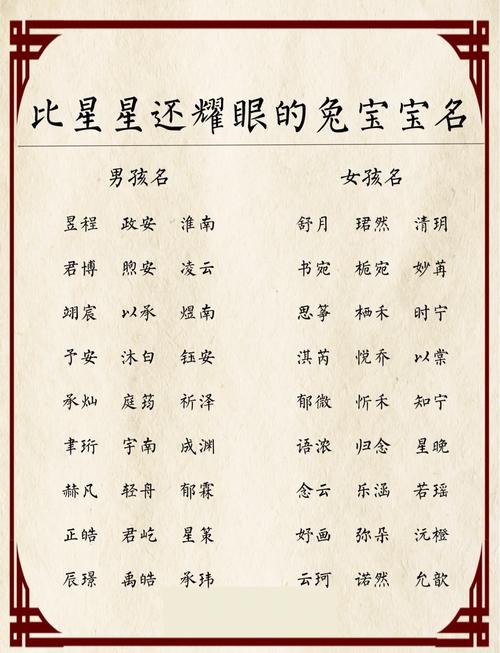 比星星还耀眼的兔宝宝名
男孩名
昱程 政安 淮南
君博 煦安 凌云
翊宸 以承 煜南
予安 沐白 钰安
承灿 庭筠 祈泽
聿珩 宇南 成渊
赫凡 轻舟 郁霖
正皓 君屹 星策
辰璟 禹皓 承玮
女孩名
舒月 珺然 清玥
书宛 栀宛 妙苒
思筝 栖禾 时宁
淇芮 悦乔 以棠
郁微 忻禾 知宁
语浓 归念 星晚
念云 乐涵 若瑶
好画 弥朵 沅橙
云珂 诺然 允歆